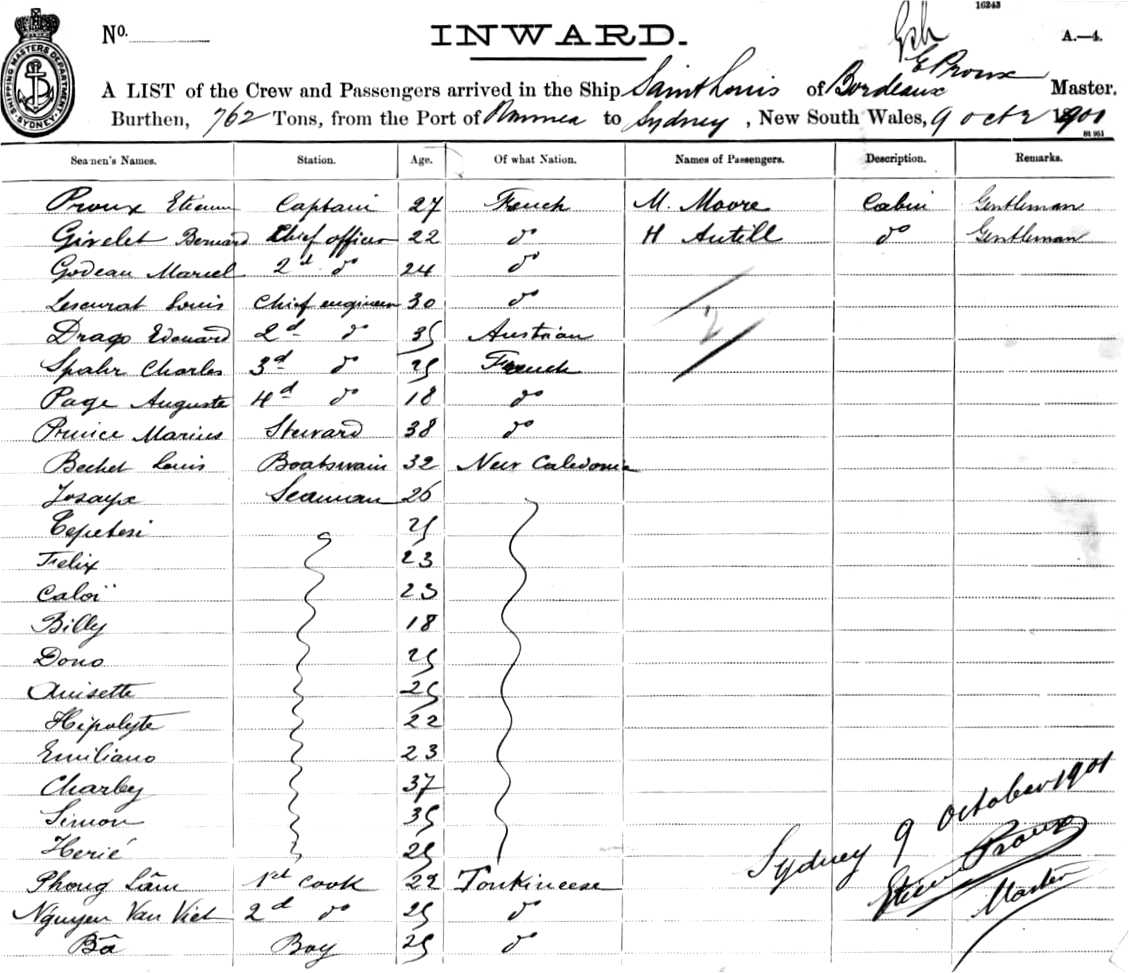 16243
No. INWARD. A.—4.
E Proux
A LIST of the Crew and Passengers arrived in the Ship Saint Louis of Bordeaux Master.
Burthen, 762 Tons, from the Port of Noumea to Sydney, New South Wales, 9 Oct 1901
SHIPPING MASTERS DEPARTMENT SYDNEY
Seamen's Names. Station. Age. Of what Nation. Names of Passengers. Description. Remarks.
Proux Etienne Captain 27 French M. Moore Cabin Gentleman
Givelet Bernard Chief officer 22 do H Antill do Gentleman
Godeau Marcel 2d do 24 do
Lescurat Louis Chief engineer 30 do
Drago Edouard 2d do 35 Austrian
2
Spahr Charles 3d do 25 French
Page Auguste 4d do 18 do
Prunice Marius Steward 38 do
Bechet Louis Boatswain 32 New Caledonia
Josaya Seaman 26
Tepeteri 25
Felix 23
Caloï 23
Billy 18
Dono 25
Anisette 25
Hipolyte 22
Emiliano 23
Charley 37
Simon 35
Herié 25
Phong Lâm 1st cook 22 Tonkineese
Nguyen Van Viet 2d do 25 do
Bâ Boy 25 do
Sydney 9 October 1901
Etienne Proux
Master